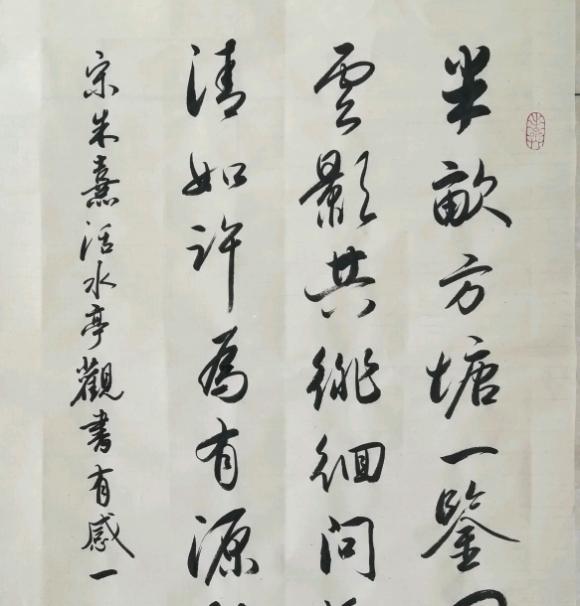 半畝方塘一鑒
雲影共徘徊問
清如許為有源
宋朱熹活水亭觀書有感一